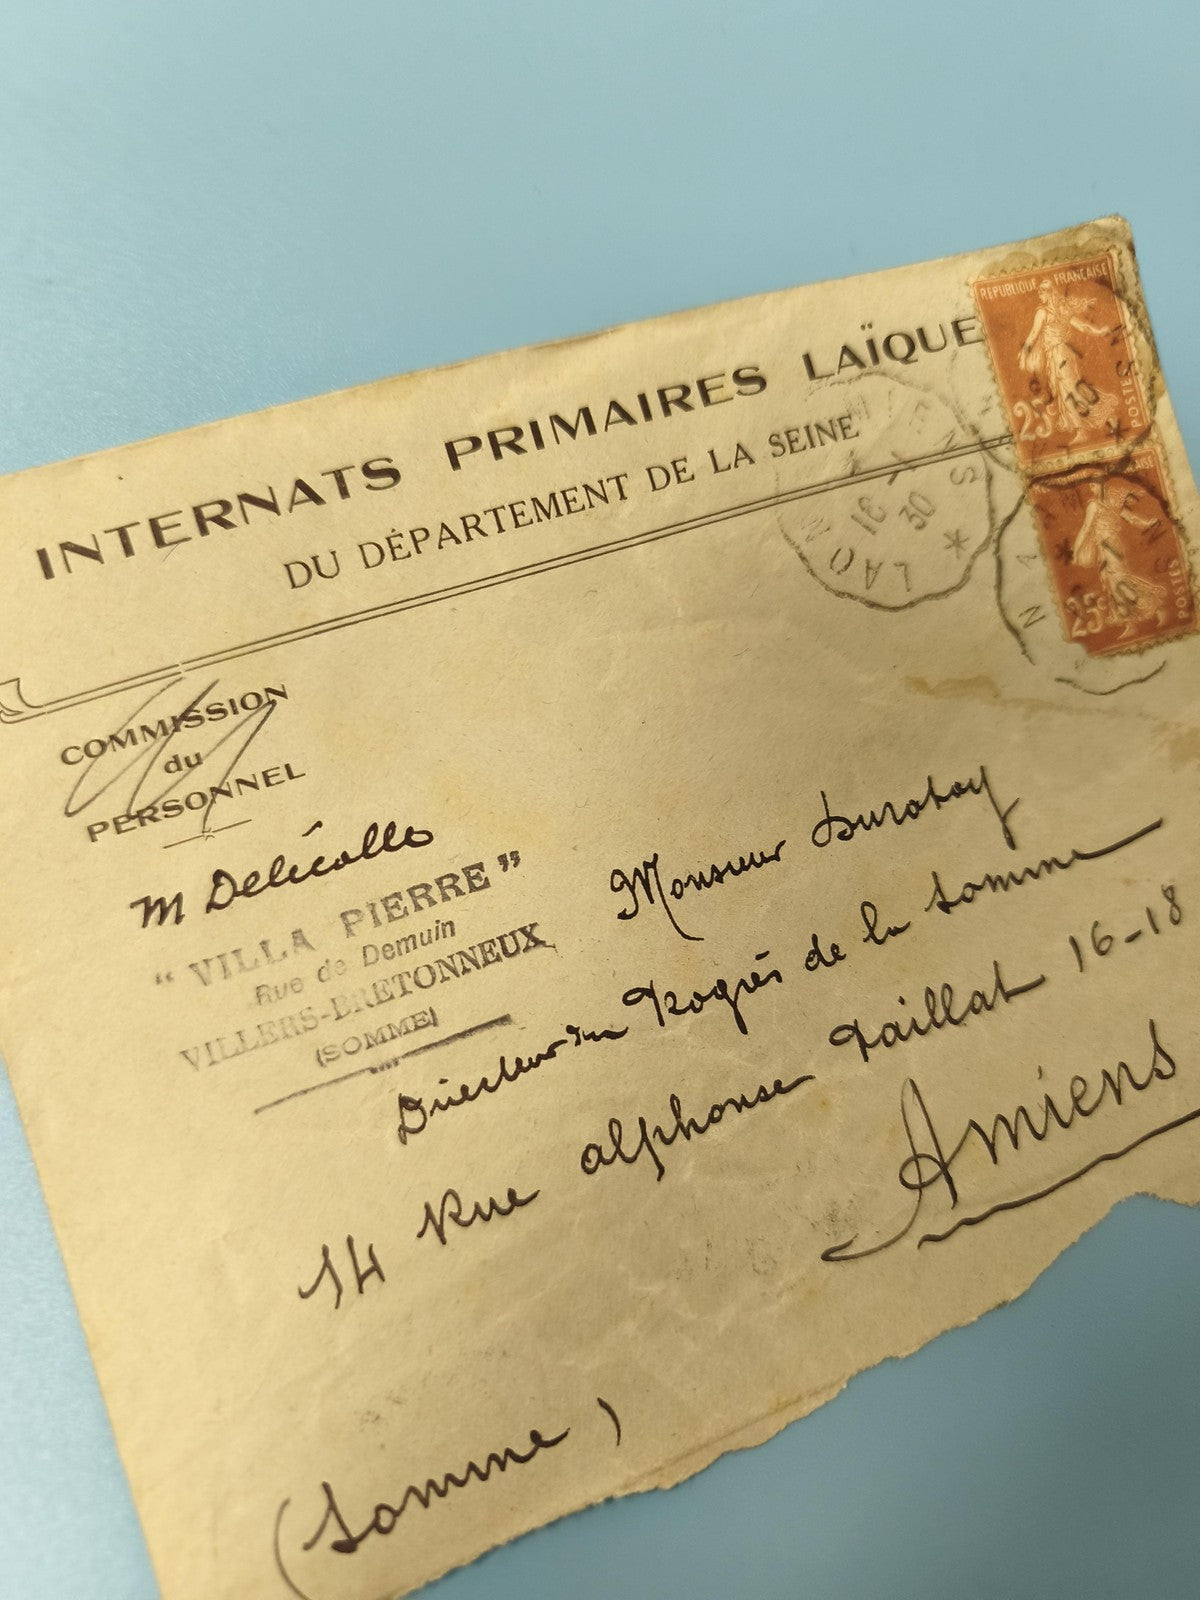 INTERNATS PRIMAIRES LAÏQUE
DU DÉPARTEMENT DE LA SEINE
REPUBLIQUE FRANÇAISE
25c POSTES
25c POSTES
LAON
AMIENS
16 -1
30
COMMISSION
du
PERSONNEL
M Delécolle
"VILLA PIERRE"
Rue de Demuin
VILLERS-BRETONNEUX
(SOMME)
Monsieur
Directeur du Progrès de la Somme
14 Rue alphonse Paillat 16-18
Amiens
(Somme)